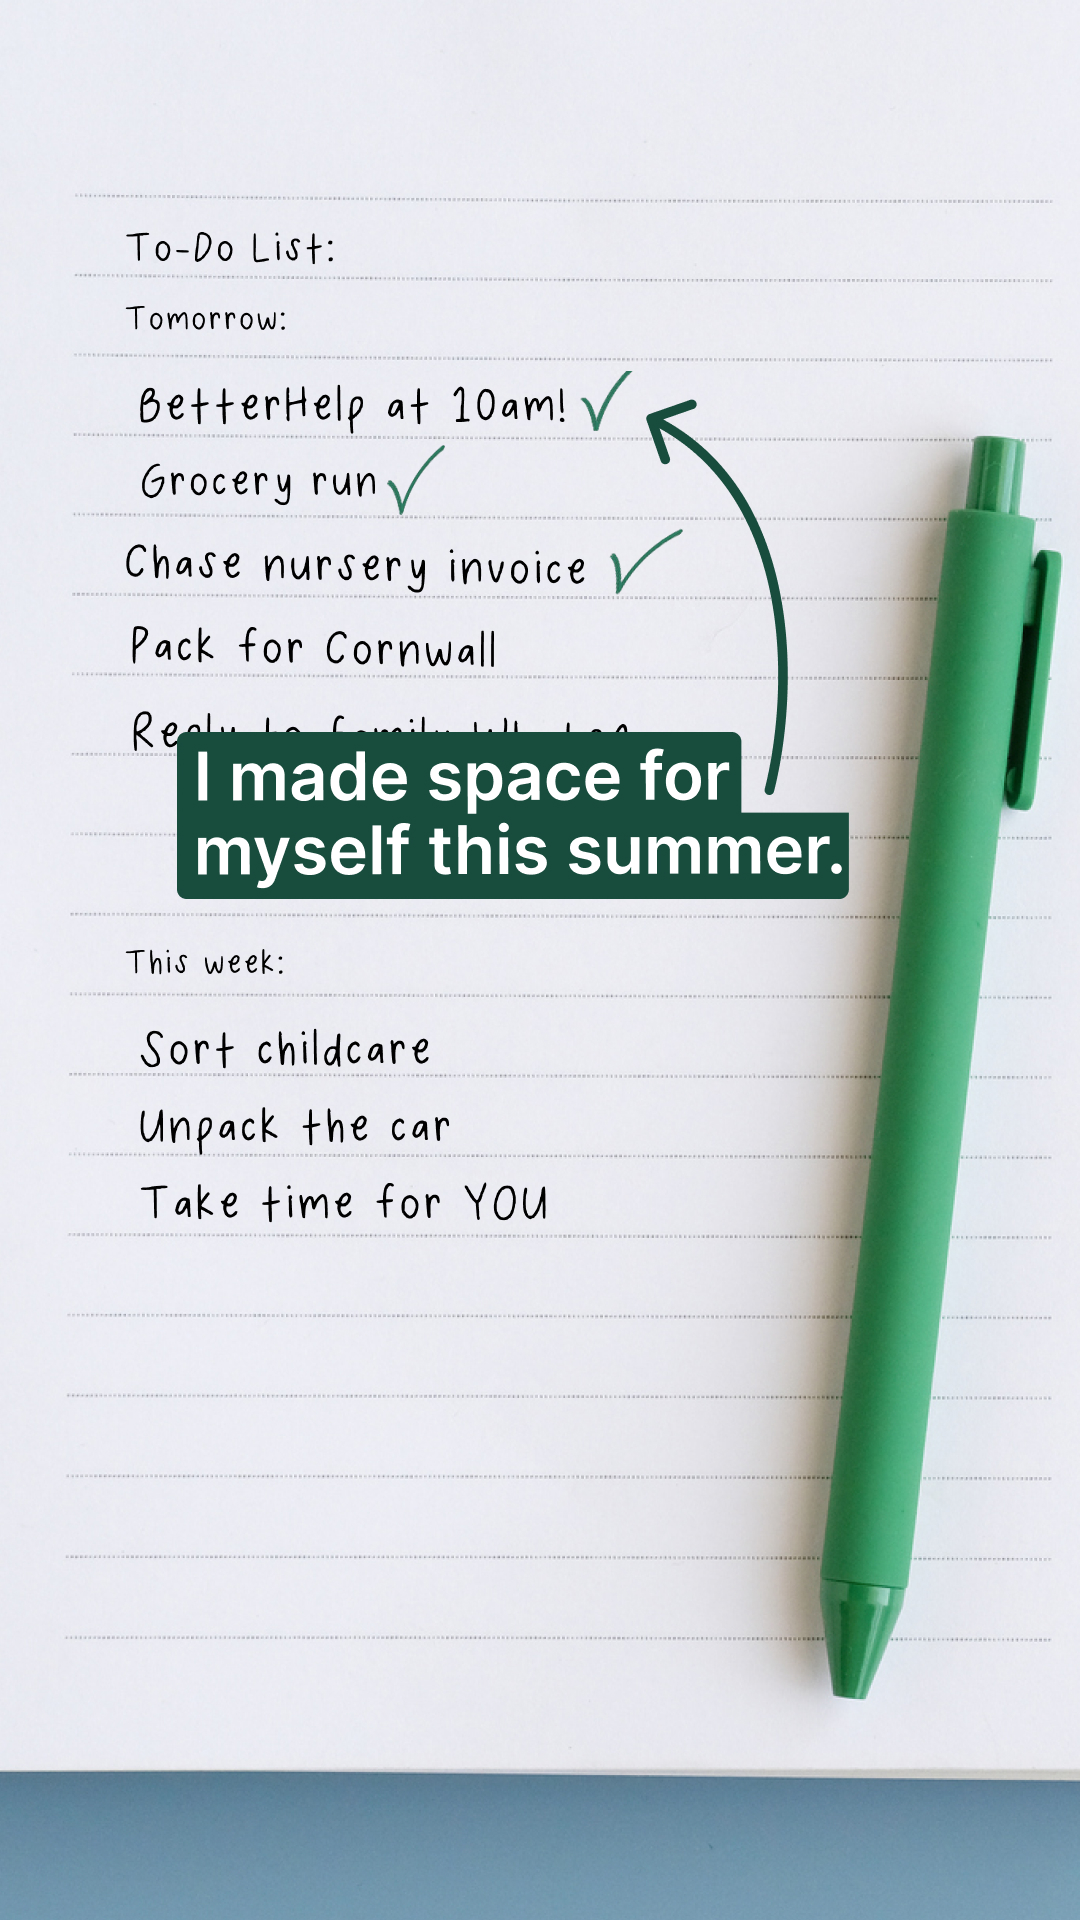 To-Do List:
Tomorrow:
BetterHelp at 10am!
Grocery run
Chase nursery invoice
Pack for Cornwall
Reply to family
I made space for
myself this summer.
This week:
Sort childcare
Unpack the car
Take time for YOU